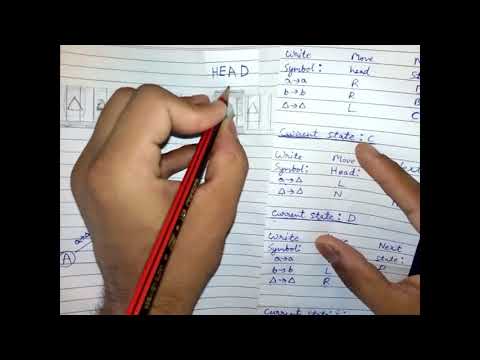 HEAD
Δ a
Δ
A
Write Move N
Symbol: head
a→a R
b→b R
Δ→Δ L C
Current state: C
Write Move
Symbol: Head:
a→Δ L
Δ→Δ N
Current state: D
Write Next
Symbol: state:
a→a
b→b L D
Δ→Δ R
Current state: